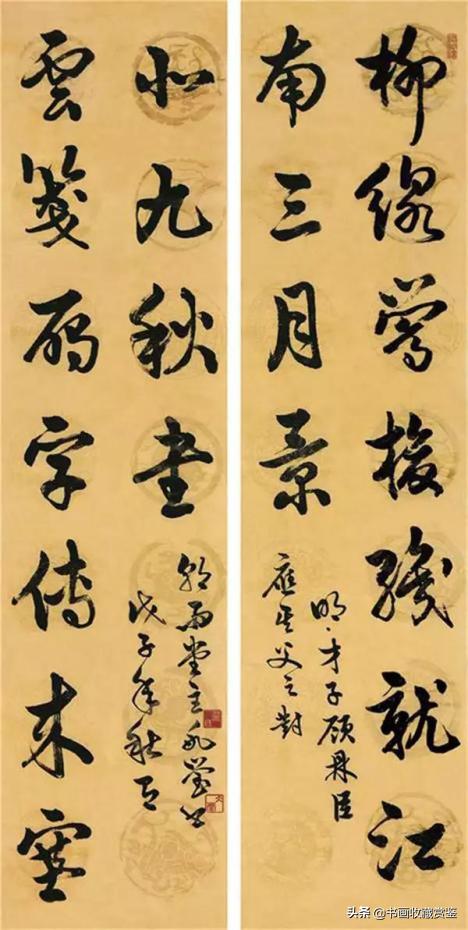 柳線鶯梭織就江
南三月景
明·才子顧鼎臣
應其父之對
雲箋雁字傳来塞
北九秋書
雨堂主
戊子年秋
头条 @书画收藏赏鉴